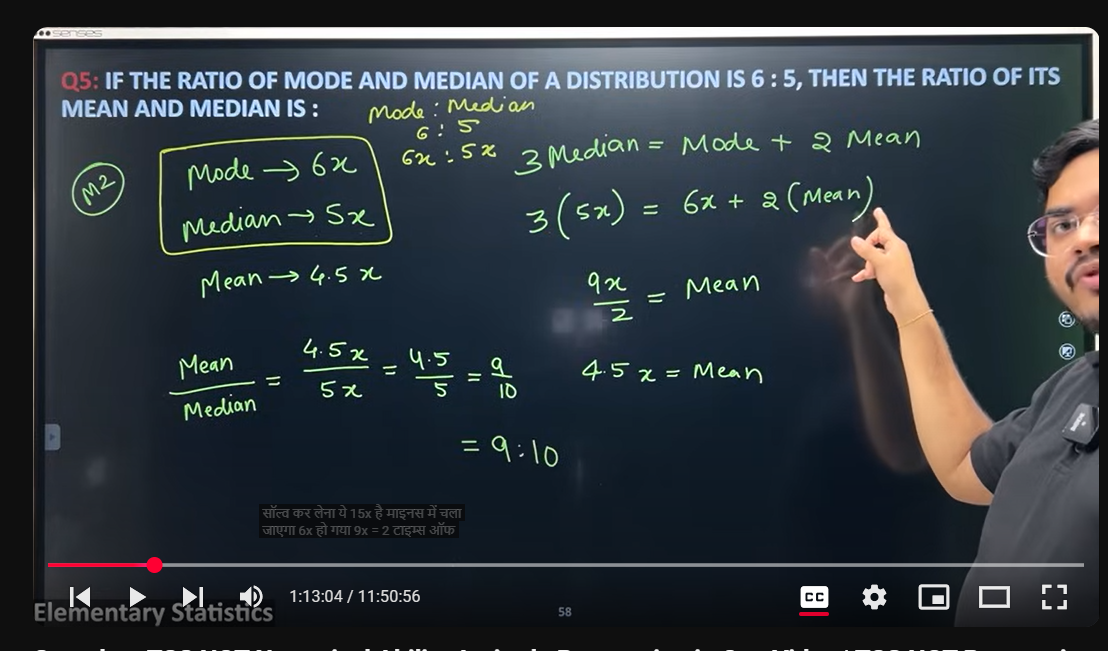 senses
Q5: IF THE RATIO OF MODE AND MEDIAN OF A DISTRIBUTION IS 6 : 5, THEN THE RATIO OF ITS
MEAN AND MEDIAN IS :
Mode : Median
6 : 5
6x : 5x
M2
Mode → 6x
Median → 5x
Mean → 4.5x
3 Median = Mode + 2 Mean
3(5x) = 6x + 2(Mean)
9x/2 = Mean
4.5x = Mean
Mean/Median = 4.5x/5x = 4.5/5 = 9/10
= 9:10
सॉल्व कर लेना ये 15x है माइनस में चला
जाएगा 6x हो गया 9x = 2 टाइम्स ऑफ
1:13:04 / 11:50:56
CC
Elementary Statistics
58